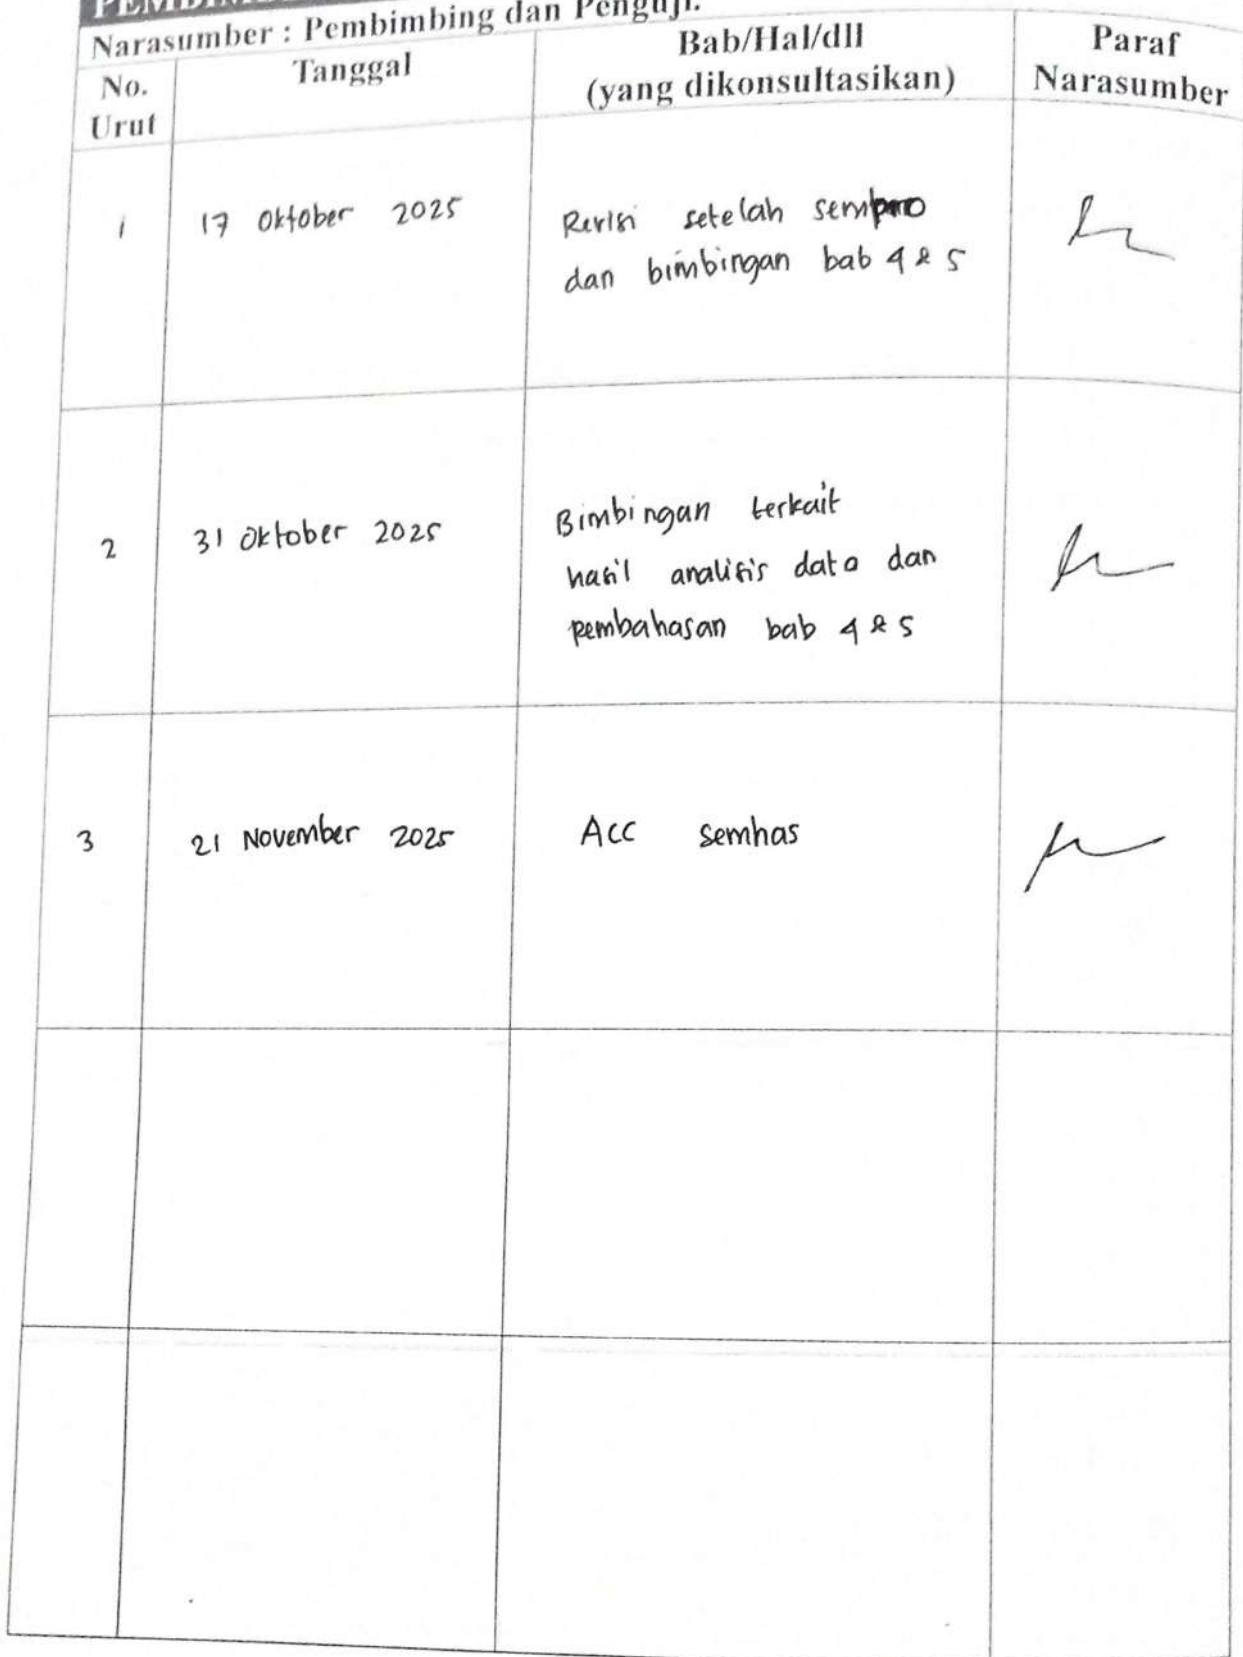 Narasumber : Pembimbing dan Penguji.
No. Urut
Tanggal
Bab/Hal/dll
(yang dikonsultasikan)
Paraf
Narasumber
1
17 Oktober 2025
Revisi setelah sempro
dan bimbingan bab 4 & 5
2
31 Oktober 2025
Bimbingan terkait
hasil analisis data dan
pembahasan bab 4 & 5
3
21 November 2025
Acc semhas